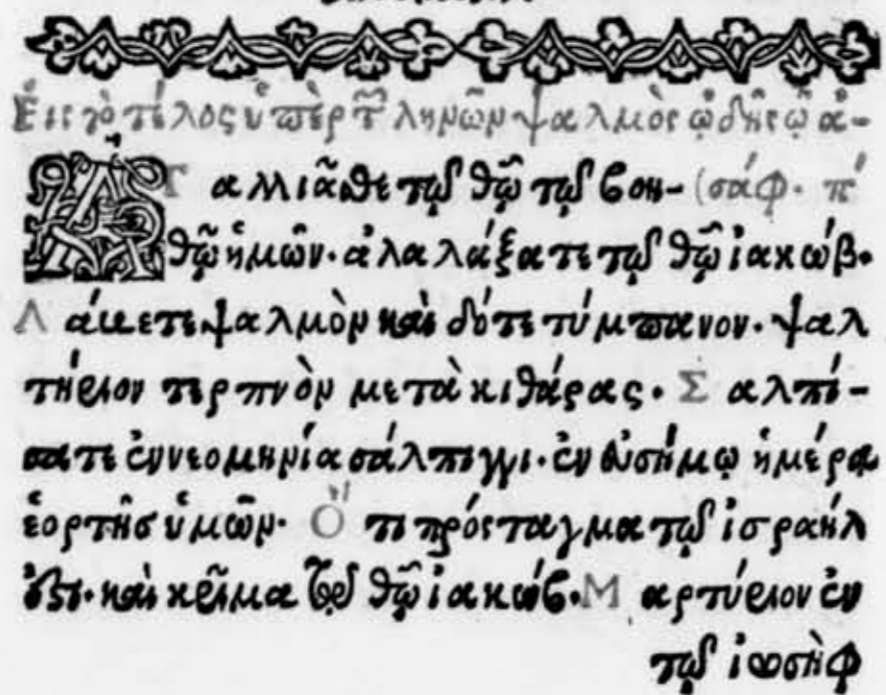 Εἰς τὸ τέλος ὑπὲρ τῶν ληνῶν ψαλμὸς ᾠδῆς τῷ ἀ-
Ἀγαλλιᾶσθε τῷ θῷ τῷ βοη- (σάφ. π´
θῷ ἡμῶν. ἀλαλάξατε τῷ θῷ ἰακώβ.
Λάβετε ψαλμὸν καὶ δότε τύμπανον. ψαλ
τήριον τερπνὸν μετὰ κιθάρας. Σαλπί-
σατε ἐν νεομηνίᾳ σάλπιγγι. ἐν εὐσήμῳ ἡμέρᾳ
ἑορτῆς ὑμῶν. Ὅτι πρόσταγμα τῷ ἰσραήλ
ἐστι. καὶ κρῖμα τῷ θῷ ἰακώβ. Μαρτύριον ἐν
τῷ ἰωσὴφ